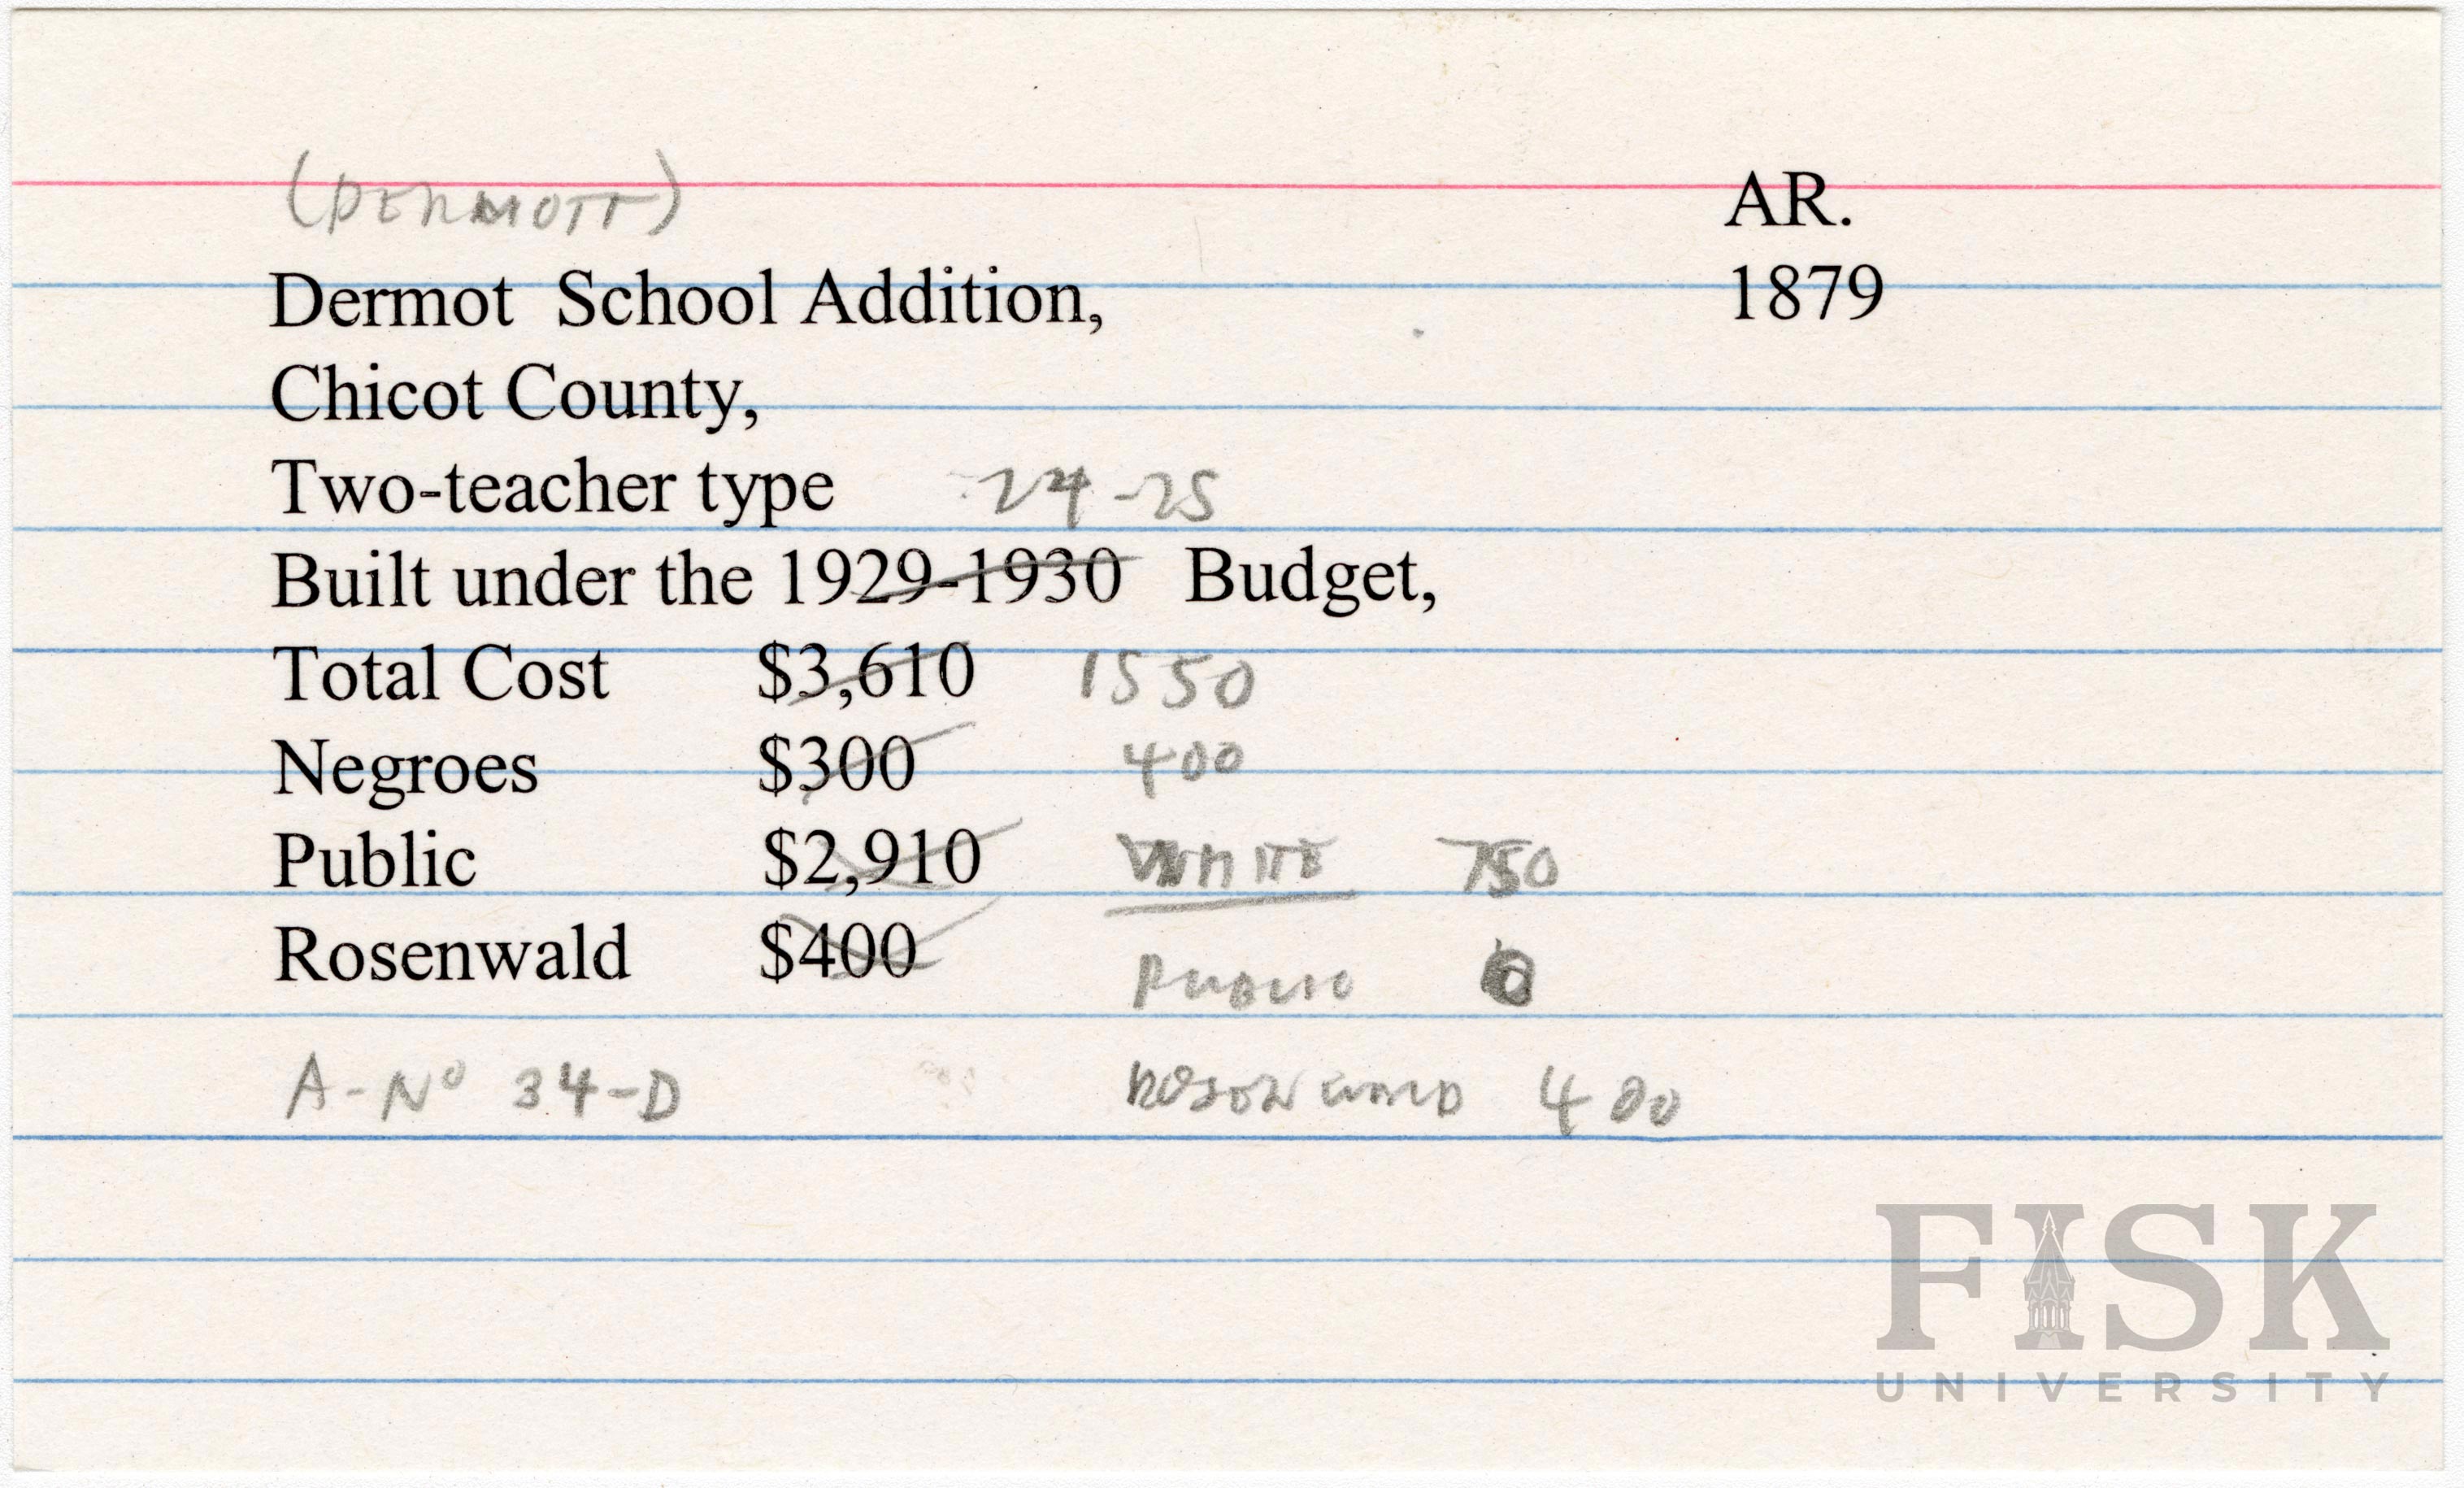 (DERMOTT)
AR.
Dermot School Addition,
1879
Chicot County,
Two-teacher type 24-25
Built under the 1929-1930 Budget,
Total Cost $3,610 1550
Negroes $300 400
Public $2,910 WHITE 750
Rosenwald $400
PUBLIC 0
A-No 34-D ROSENWALD 400
FISK
UNIVERSITY